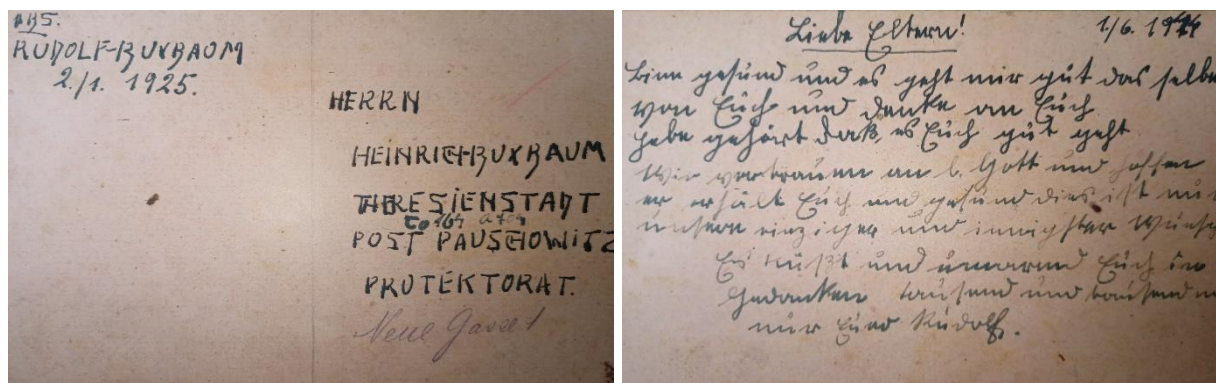 ABS.
RUDOLF-BUXBAUM
2./1. 1925.
HERRN
HEINRICH-BUXBAUM
THERESIENSTADT
POST BAUSCHOWITZ
PROTEKTORAT.
Neue Gasse 1
Liebe Eltern! 1./6. 1944
Binn gesund und es geht mir gut das selbe
von Euch und denke an Euch
habe gehört daß es Euch gut geht
Wir vertrauen an l. Gott und hoffen
er erhält Euch und gesund dies ist
unsere einziger und innigster Wunsch
Es küßt und umarmd Euch in
Gedanken tausend und tausend
nur Euer Rudolf.